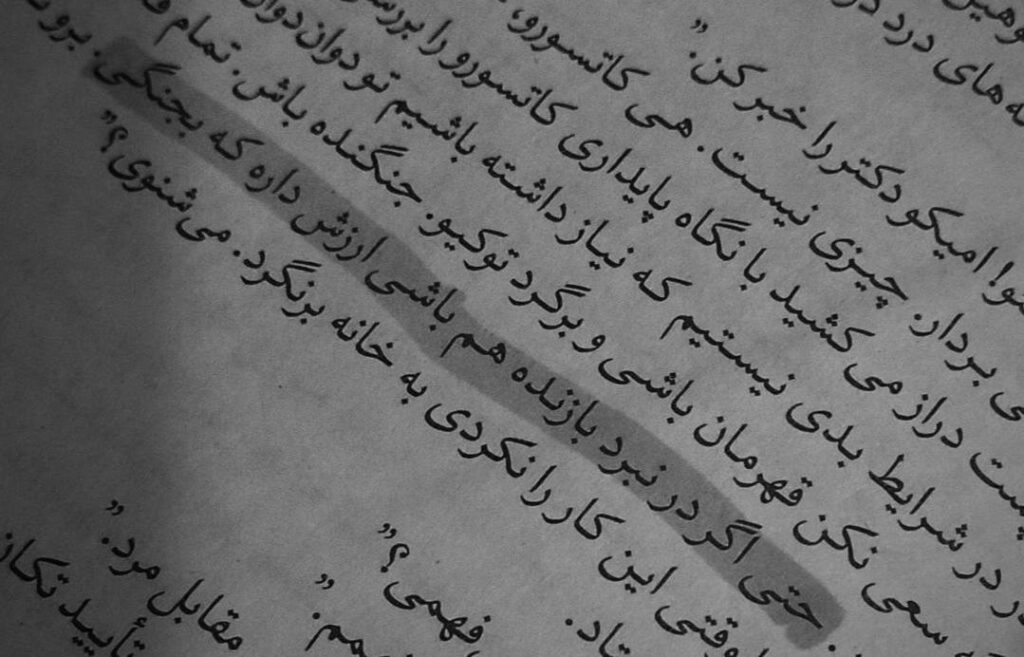 های درد
امیکو دکتر را خبر کن.”
بردار. چیزی نیست. هی کاتسورو،
دراز می کشید با نگاه پایداری کاتسورو را بررسی
در شرایط بدی نیستیم که نیاز داشته باشیم تو دوان دوان
سعی نکن قهرمان باشی و برگرد توکیو. جنگنده باش. تمام
حتی اگر در نبرد بازنده هم باشی ارزش داره که بجنگی. برو
وقتی این کار را نکردی به خانه برنگرد. می شنوی؟”
فهمی؟”
مقابل مرد.”
تأیید تکان